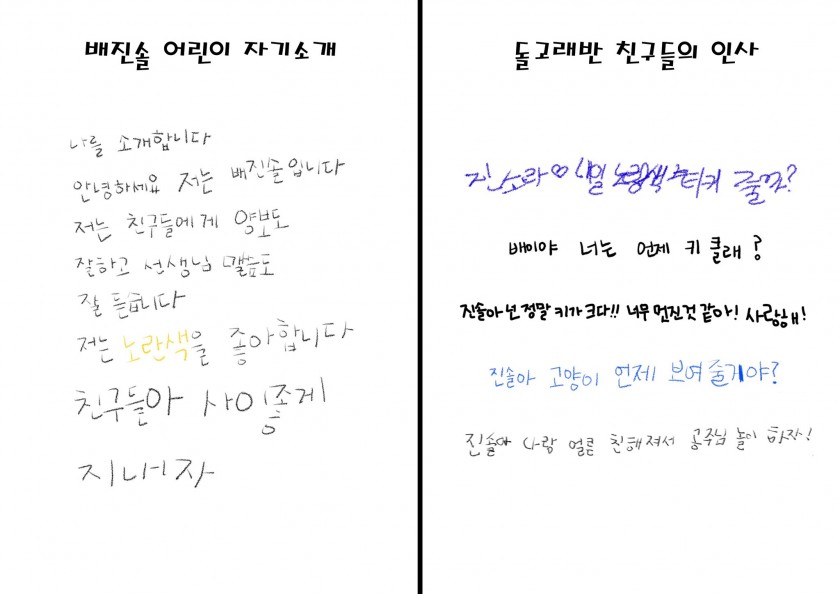 배진솔 어린이 자기소개
나를 소개합니다
안녕하세요 저는 배진솔입니다
저는 친구들에게 양보도
잘하고 선생님 말씀도
잘 듣습니다
저는 노란색을 좋아합니다
친구들아 사이좋게
지내자
돌고래반 친구들의 인사
진소라♡ 노랑색 줄까?
배이야 너는 언제 키 클래?
진솔아 넌 정말 키가 크다!! 너무 멋진것 같아! 사랑해!
진솔아 고양이 언제 보여줄거야?
진솔아 사랑 얼른 친해져서 공주님 놀이 하자!